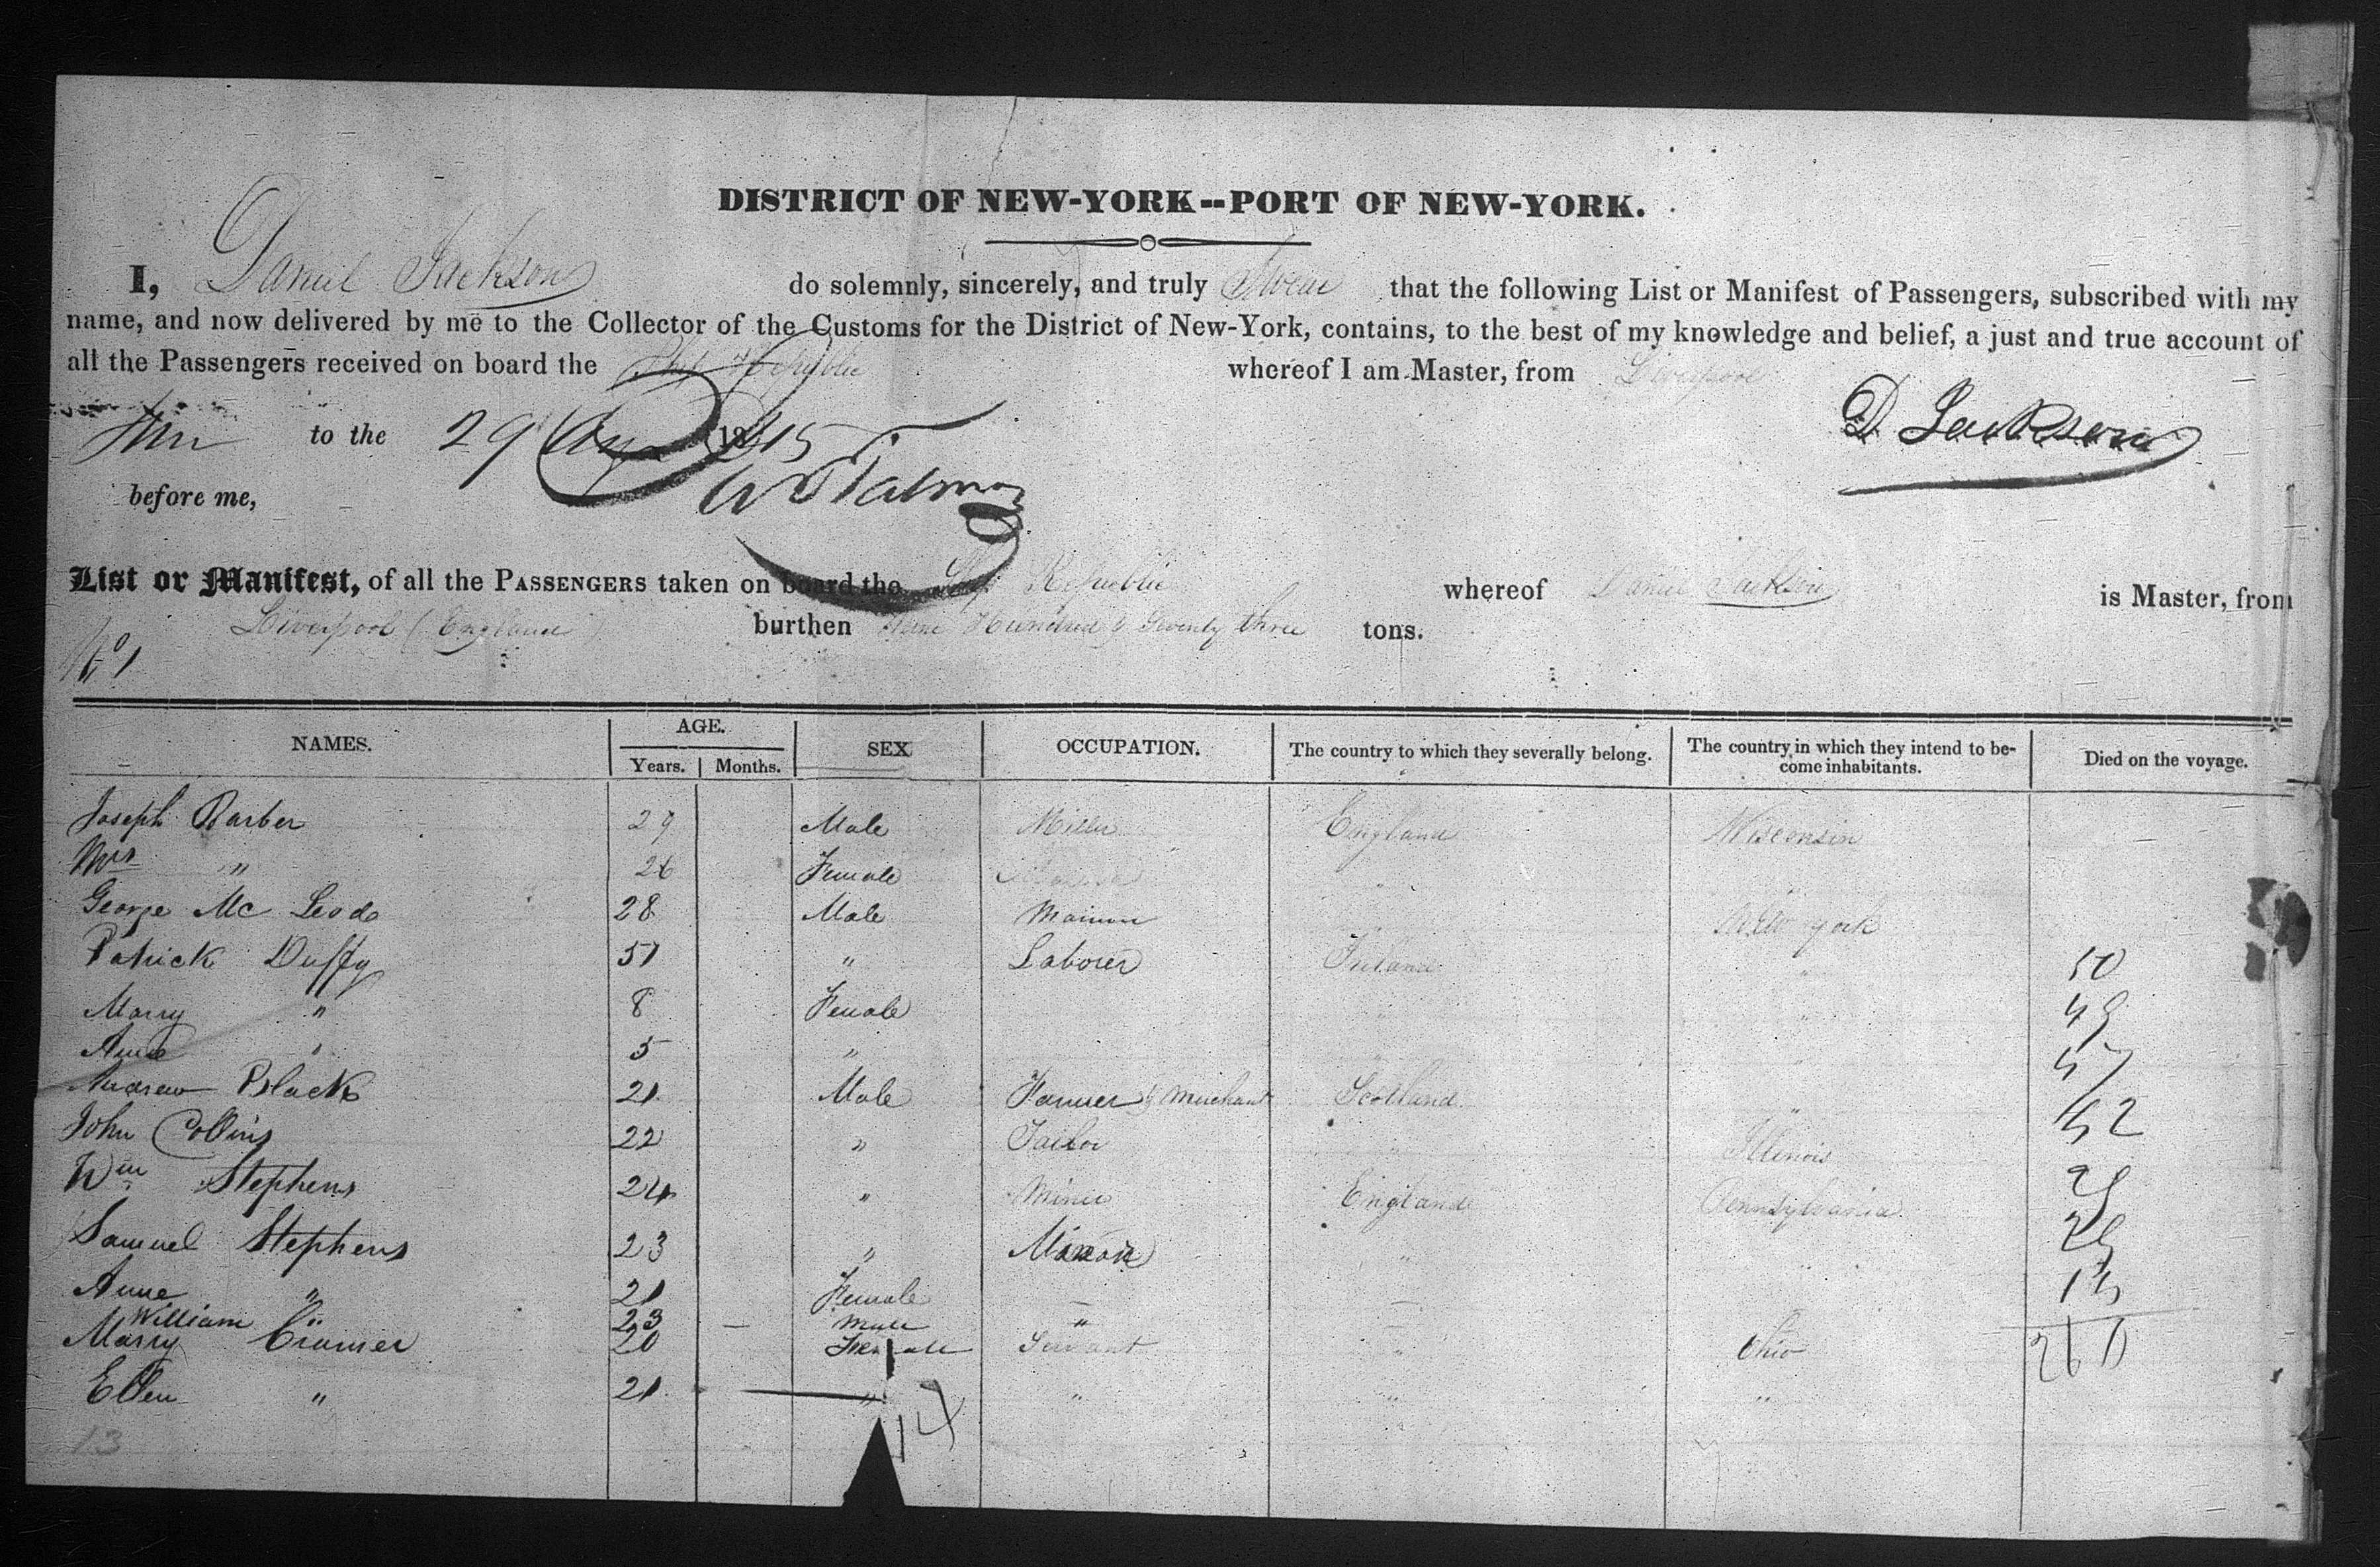 DISTRICT OF NEW-YORK--PORT OF NEW-YORK.
I, Daniel Jackson do solemnly, sincerely, and truly Swear that the following List or Manifest of Passengers, subscribed with my
name, and now delivered by me to the Collector of the Customs for the District of New-York, contains, to the best of my knowledge and belief, a just and true account of
all the Passengers received on board the Ship Republic whereof I am Master, from Liverpool
to the 29 Aug 1845 D. Jackson
before me,
List or Manifest, of all the PASSENGERS taken on board the Ship Republic whereof Daniel Jackson is Master, from
Liverpool (England) burthen Hundred & Seventy three tons.
No 1
NAMES. AGE. Years. Months. SEX OCCUPATION. The country to which they severally belong. The country in which they intend to become inhabitants. Died on the voyage.
Joseph Barber 29 Male Miller England Wisconsin
Mrs " 26 Female
George Mc Leod 28 Male New York
Patrick Duffy 51 " Laborer Ireland " 50
Marry " 8 Female " " 49
Anne " 5 " 47
Andrew Black 21 Male Farmer & Merchant Scotland " 52
John Collins 22 " Tailor " Illinois
Wm Stephens 24 " Miner England Pennsylvania
Samuel Stephens 23 " "
Anne " 21 Female
William " 23 — Male "
Marry Cramer 20 Female Servant " Ohio 260
Ellen " 21 " " " "
13 14